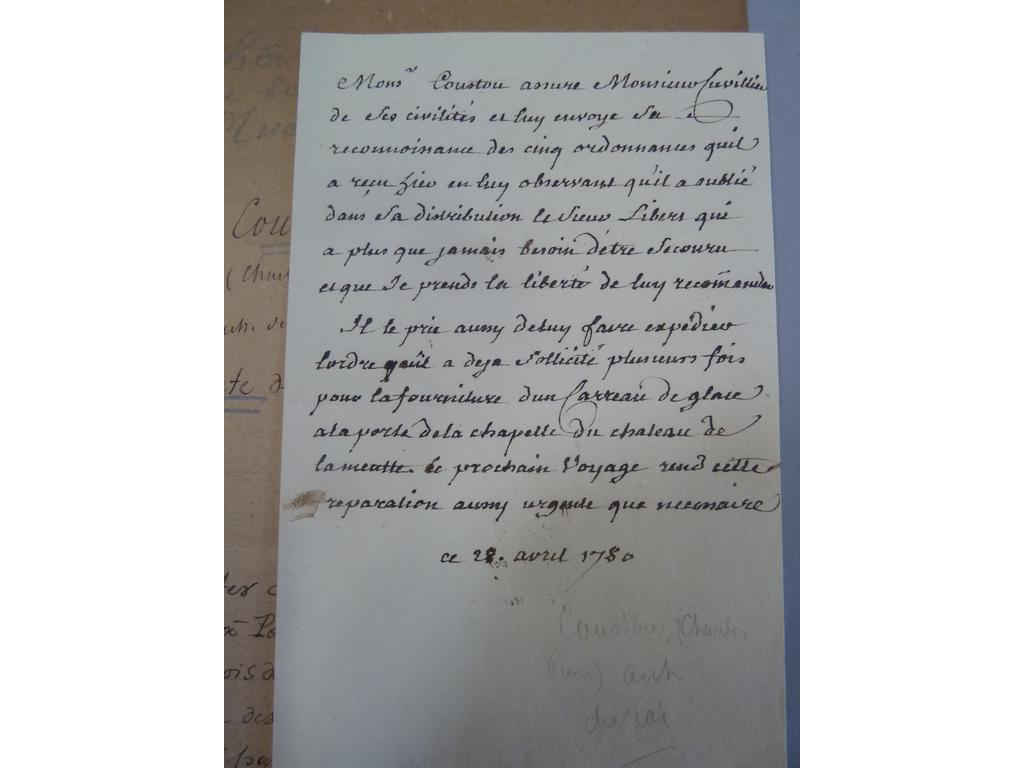 Mons.r Coustou assure Monsieur Cuvillier
de Ses civilités et luy envoye Sa
reconnoissance des cinq ordonnances qu'il
a reçu hier en luy observant qu'il a oublié
dans Sa distribution le Sieur Libert qui
a plus que jamais besoin d'être Secouru
et que Je prends la liberté de luy recom̃ander
Il le prie aussy de luy faire expédier
lordre quil a deja Sollicité plusieurs fois
pour la fourniture dun Carreau de glace
a la porte de la chapelle Du chateau de
la meutte. le prochain Voyage rend cette
reparation aussy urgente que necessaire
ce 28. avril 1780
Coustou, (Charles
auh
du roi
Cou
(Char
te d